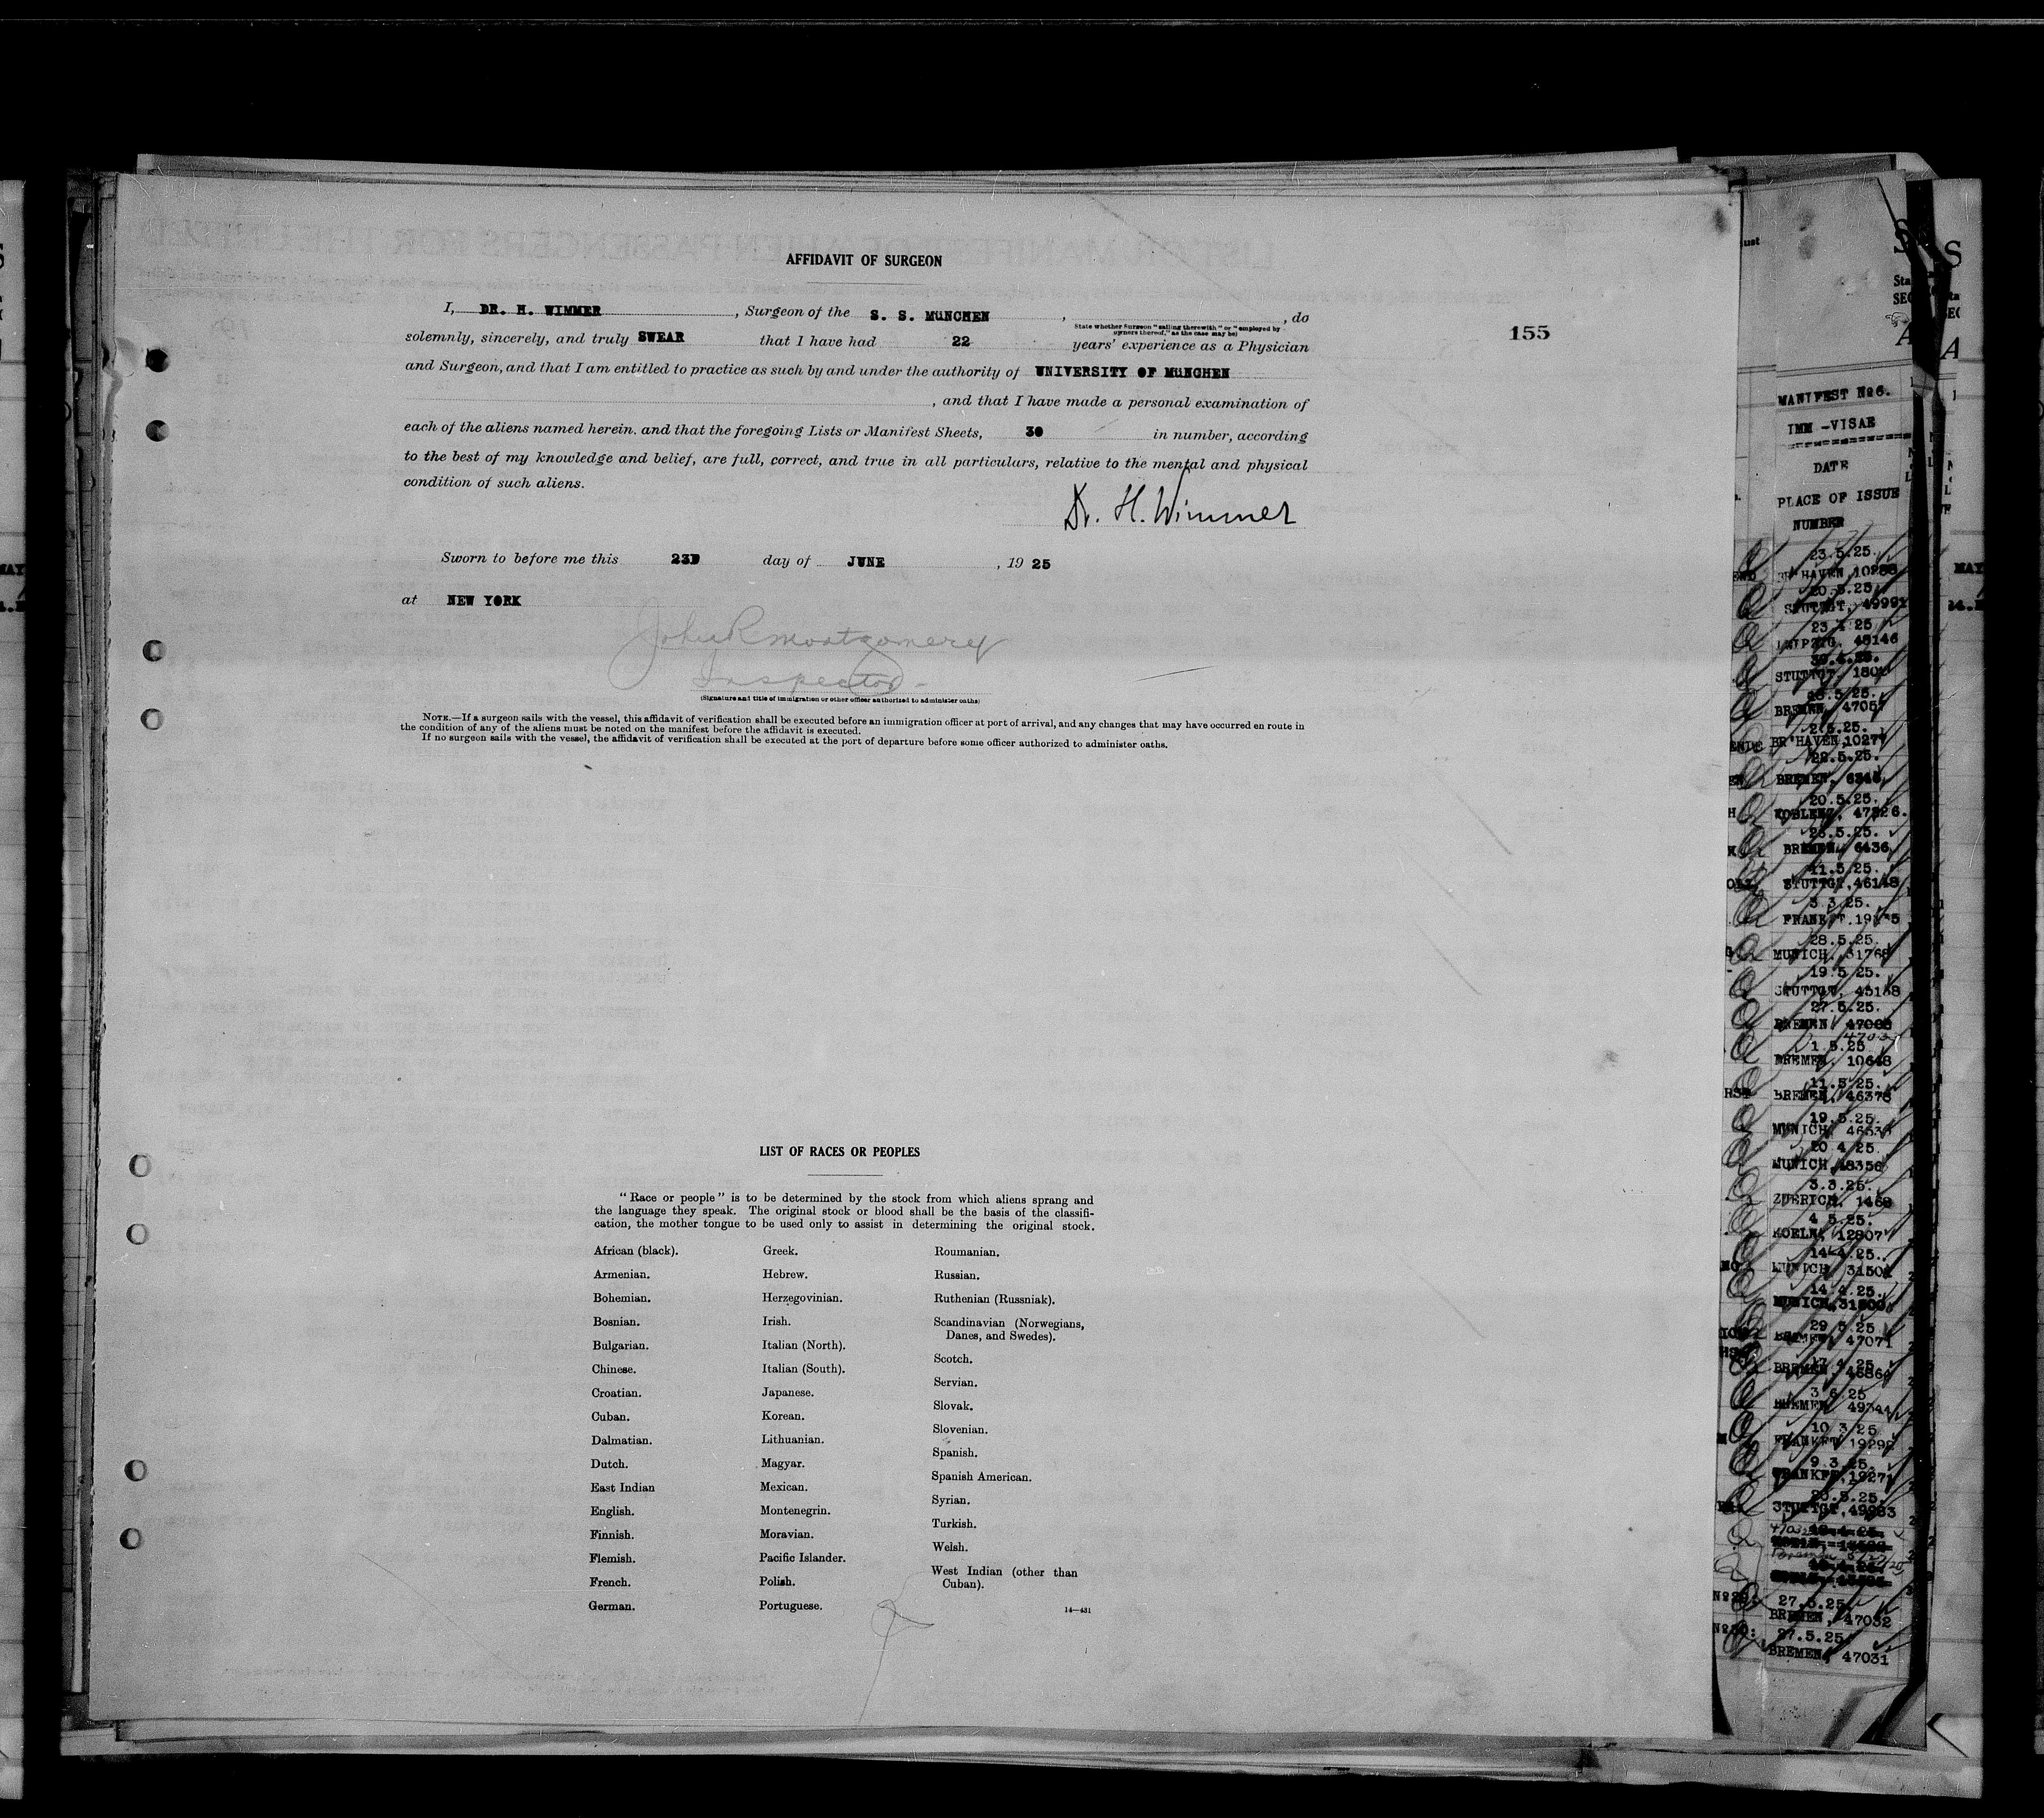 AFFIDAVIT OF SURGEON
I, DR. H. WIMMER, Surgeon of the S. S. MüNCHEN, , do
State whether Surgeon "sailing therewith" or "employed by
owners thereof," as the case may be)
155
solemnly, sincerely, and truly SWEAR that I have had 22 years' experience as a Physician
and Surgeon, and that I am entitled to practice as such by and under the authority of UNIVERSITY OF MüNCHEN
, and that I have made a personal examination of
each of the aliens named herein. and that the foregoing Lists or Manifest Sheets, 30 in number, according
to the best of my knowledge and belief, are full, correct, and true in all particulars, relative to the mental and physical
condition of such aliens.
Dr. H. Wimmer
Sworn to before me this 23D day of JUNE, 19 25
at NEW YORK
John R Montgomery
Inspector
(Signature and title of immigration or other officer authorized to administer oaths)
NOTE.—If a surgeon sails with the vessel, this affidavit of verification shall be executed before an immigration officer at port of arrival, and any changes that may have occurred en route in
the condition of any of the aliens must be noted on the manifest before the affidavit is executed.
If no surgeon sails with the vessel, the affidavit of verification shall be executed at the port of departure before some officer authorized to administer oaths.
LIST OF RACES OR PEOPLES
"Race or people" is to be determined by the stock from which aliens sprang and
the language they speak. The original stock or blood shall be the basis of the classifi-
cation, the mother tongue to be used only to assist in determining the original stock.
African (black).
Armenian.
Bohemian.
Bosnian.
Bulgarian.
Chinese.
Croatian.
Cuban.
Dalmatian.
Dutch.
East Indian
English.
Finnish.
Flemish.
French.
German.
Greek.
Hebrew.
Herzegovinian.
Irish.
Italian (North).
Italian (South).
Japanese.
Korean.
Lithuanian.
Magyar.
Mexican.
Montenegrin.
Moravian.
Pacific Islander.
Polish.
Portuguese.
Roumanian.
Russian.
Ruthenian (Russniak).
Scandinavian (Norwegians,
Danes, and Swedes).
Scotch.
Servian.
Slovak.
Slovenian.
Spanish.
Spanish American.
Syrian.
Turkish.
Welsh.
West Indian (other than
Cuban).
14—431
MANIFEST No6.
IMM -VISAE
DATE
PLACE OF ISSUE
NUMBER
23.5.25.
BR'HAVEN,
20.5.25.
STUTTGT, 49991
23.4.25
LEIPZIG, 45146
30.4.25.
STUTTGT,
BREMEN, 47057
2.5.25.
BR'HAVEN,10277
22.5.25.
BREMEN,
20.5.25.
KOBLENZ, 47226.
23.5.25.
BREMEN, 6436
11.5.25.
STUTTGT,46148
3.3.25.
FRANKFT.
28.5.25.
MUNICH, 31768
19.5.25.
STUTTGT,
27.5.25.
BREMEN
1.5.25
BREMEN, 10648
11.5.25.
BREMEN, 46378
19.5.25.
MUNICH,
20.4.25.
MUNICH,
3.3.25.
ZUERICH, 1468
4.5.25.
KOELN, 12807
14.4.25.
MUNICH, 31501
14.4.25.
MUNICH,31500
29.5.25
BREMEN, 47071
17.4.25
BREMEN,
3.6.25
BREMEN,
10.3.25
FRANKFT,
9.3.25.
FRANKFT,19271
20.5.25.
STUTTGT,49983
27.5.25.
BREMEN, 47032
27.5.25.
BREMEN, 47031